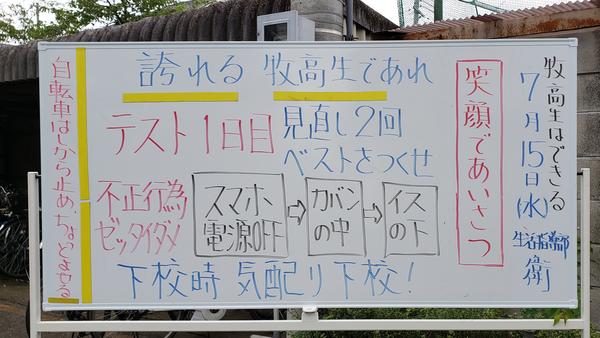 牧高生はできる
7月15日(水)
生活指導部
衛
笑顔であいさつ
誇れる 牧高生であれ
テスト1日目
見直し2回
ベストをつくせ
不正行為
ゼッタイダメ
スマホ
電源OFF
⇨
カバン
の中
⇨
イス
の下
下校時 気配り下校!
自転車はしから止め、ちょっとよせる